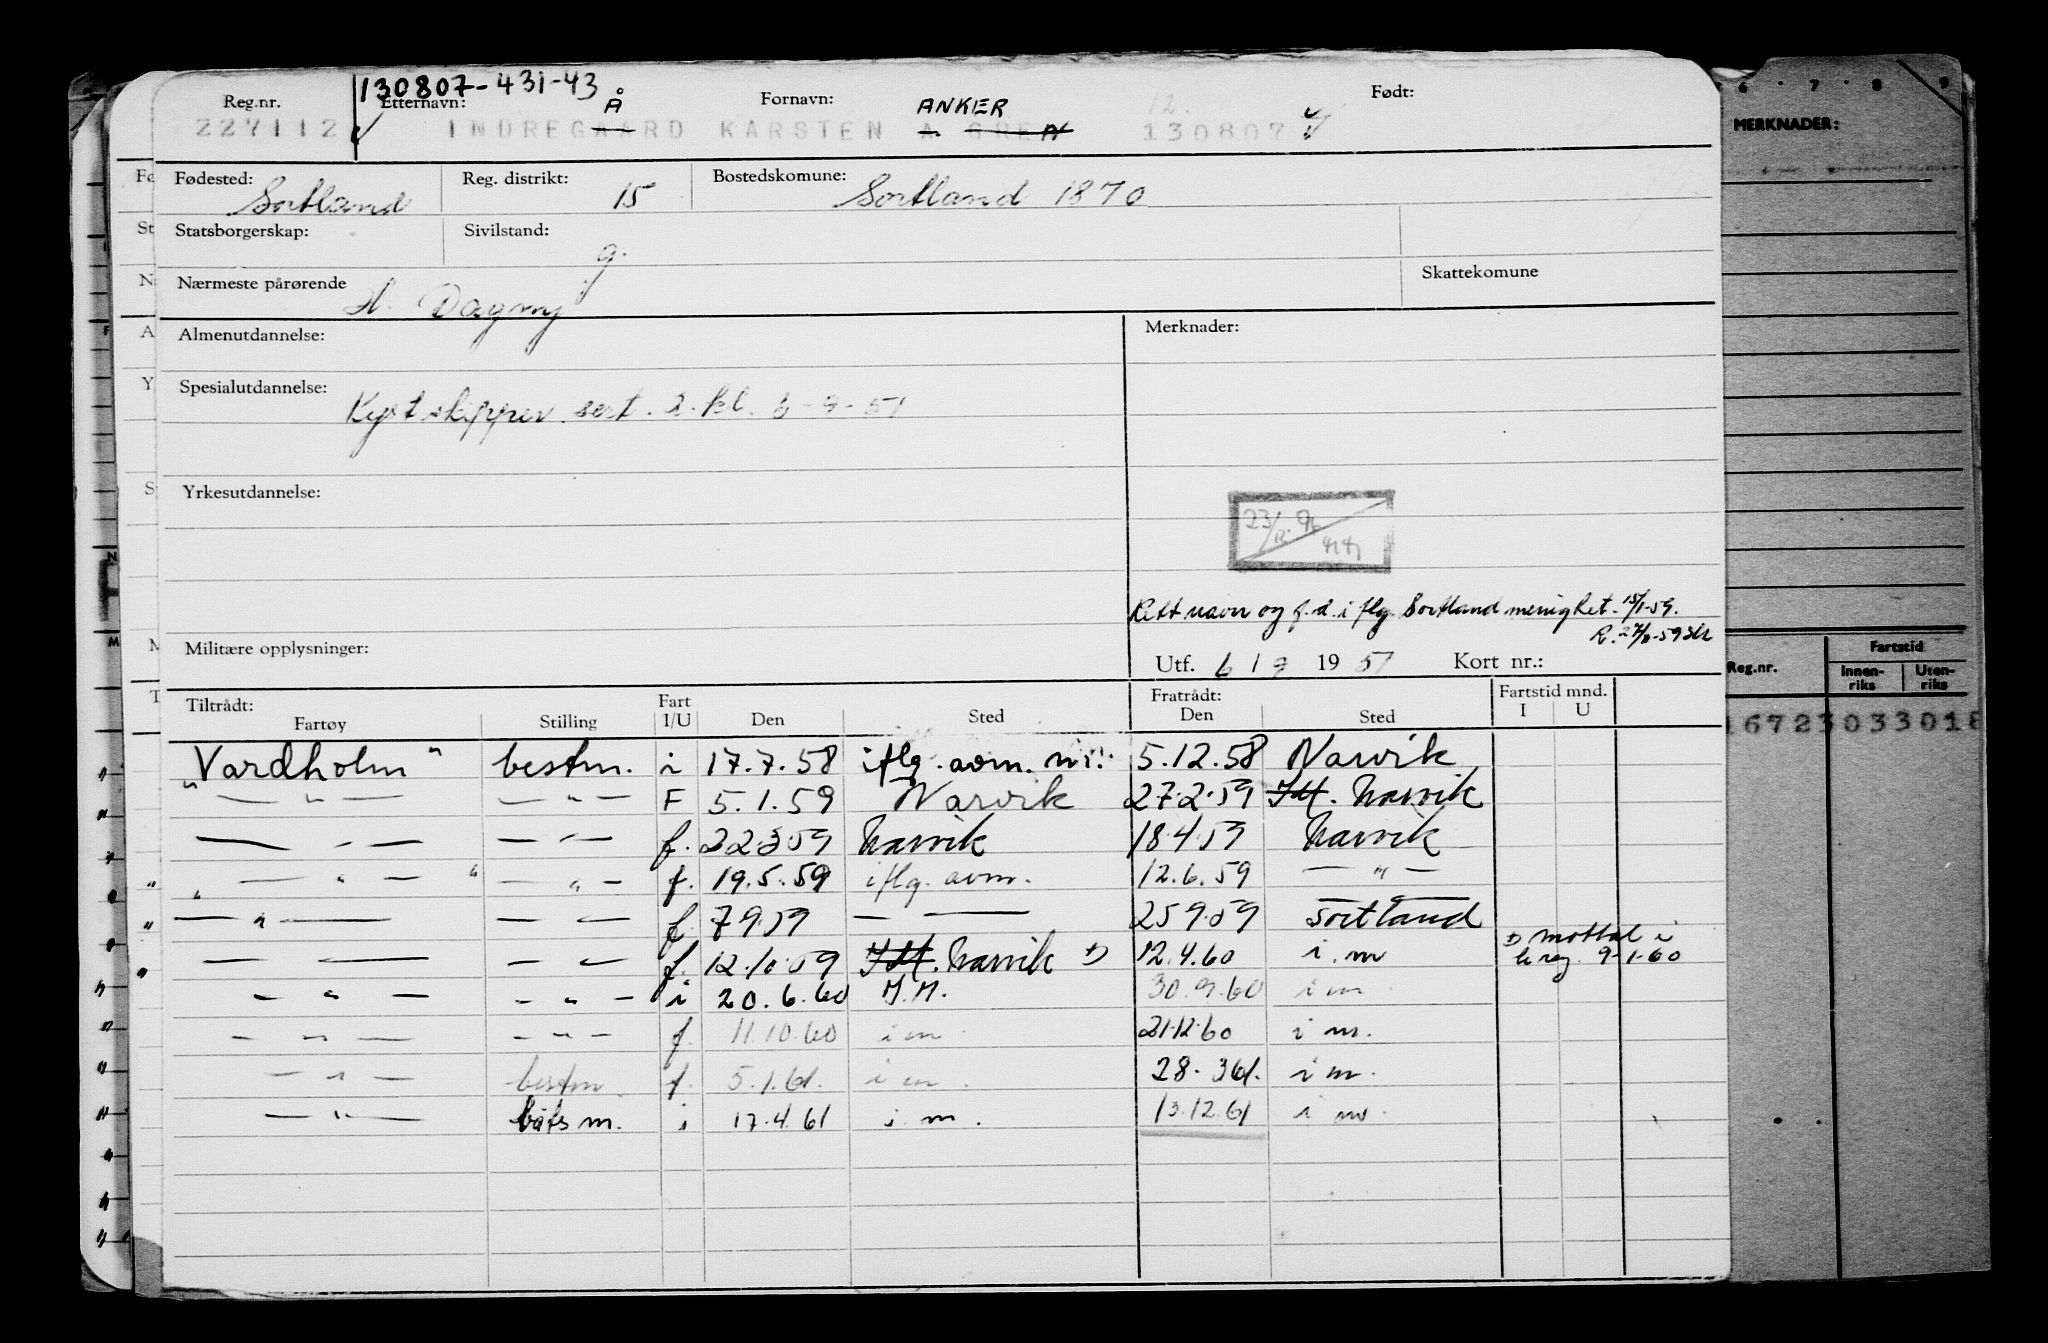 130807-431-43
Reg.nr. Etternavn: Å Fornavn: ANKER Født:
227112 INDREGAARD KARSTEN A GREN 130807
Fødested: Sortland Reg. distrikt: 15 Bostedskomune: Sortland 1870
Statsborgerskap: Sivilstand: g.
Nærmeste pårørende H. Dagny Skattekomune
Almenutdannelse: Merknader:
Spesialutdannelse: Kystskipper sert. 2. kl. 6-9-51
Yrkesutdannelse:
23/12.96
Rett navn og f.d. i flg. Sortland menighet. 15/1-59.
Militære opplysninger:
Utf. 6 / 9 1951 Kort nr.:
Tiltrådt: Fart Fratrådt: Fartstid mnd.
Fartøy Stilling I/U Den Sted Den Sted I U
"Vardholm" bestm. i 17.7.58 iflg. avm. 5.12.58 Narvik
— " — — " — F 5.1.59 Narvik 27.2.59 I.M. Narvik
— " — — " — f. 22.3.59 Narvik 18.4.59 Narvik
— " — — " — f. 19.5.59 iflg. avm. 12.6.59 — " —
— " — — " — f. 7.9.59 — — 25.9.59 Sortland
— — — — f. 12.10.59 I.M. Narvik 1) 12.4.60 i. m 1) mottat i
h.reg. 9-1-60
— " — — " — i 20.6.60 I.M. 30.9.60 i m.
— " — — " — f. 11.10.60 i m. 21.12.60 i m.
— " — bestm. f. 5.1.61. i m. 28.3.61. i m.
— " — båtsm. i 17.4.61 i. m. 13.12.61 i m.
6 . 7 . 8 . 9
MERKNADER:
Reg.nr. Fartstid
Innen-
riks Uten-
riks
16723033018